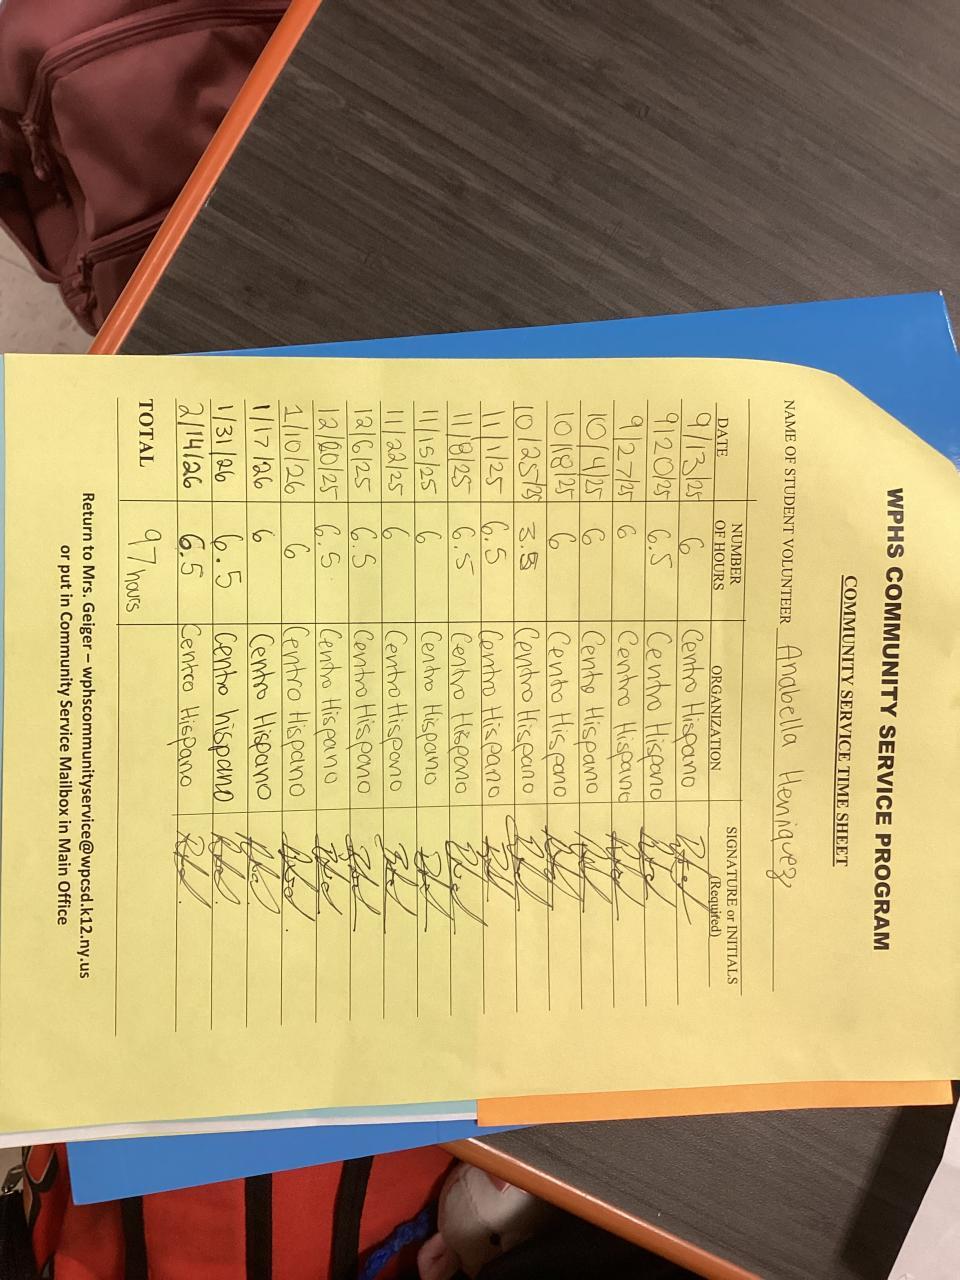 WPHS COMMUNITY SERVICE PROGRAM
COMMUNITY SERVICE TIME SHEET
NAME OF STUDENT VOLUNTEER Anabella Heniquez
DATE NUMBER OF HOURS ORGANIZATION SIGNATURE or INITIALS (Required)
9/13/25 6 Centro Hispano
9/20/25 6.5 Centro Hispano
9/27/25 6 Centro Hispano
10/4/25 6 Centro Hispano
10/18/25 6 Centro Hispano
10/25/25 3.5 Centro Hispano
11/1/25 6.5 Centro Hispano
11/8/25 6.5 Centro Hispano
11/15/25 6 Centro Hispano
11/22/25 6 Centro Hispano
12/6/25 6.5 Centro Hispano
12/20/25 6.5 Centro Hispano
1/10/26 6 Centro Hispano
1/17/26 6 Centro Hispano
1/31/26 6.5 Centro hispano
2/14/26 6.5 Centro Hispano
TOTAL 97 hours
Return to Mrs. Geiger – wphscommunityservice@wpcsd.k12.ny.us
or put in Community Service Mailbox in Main Office